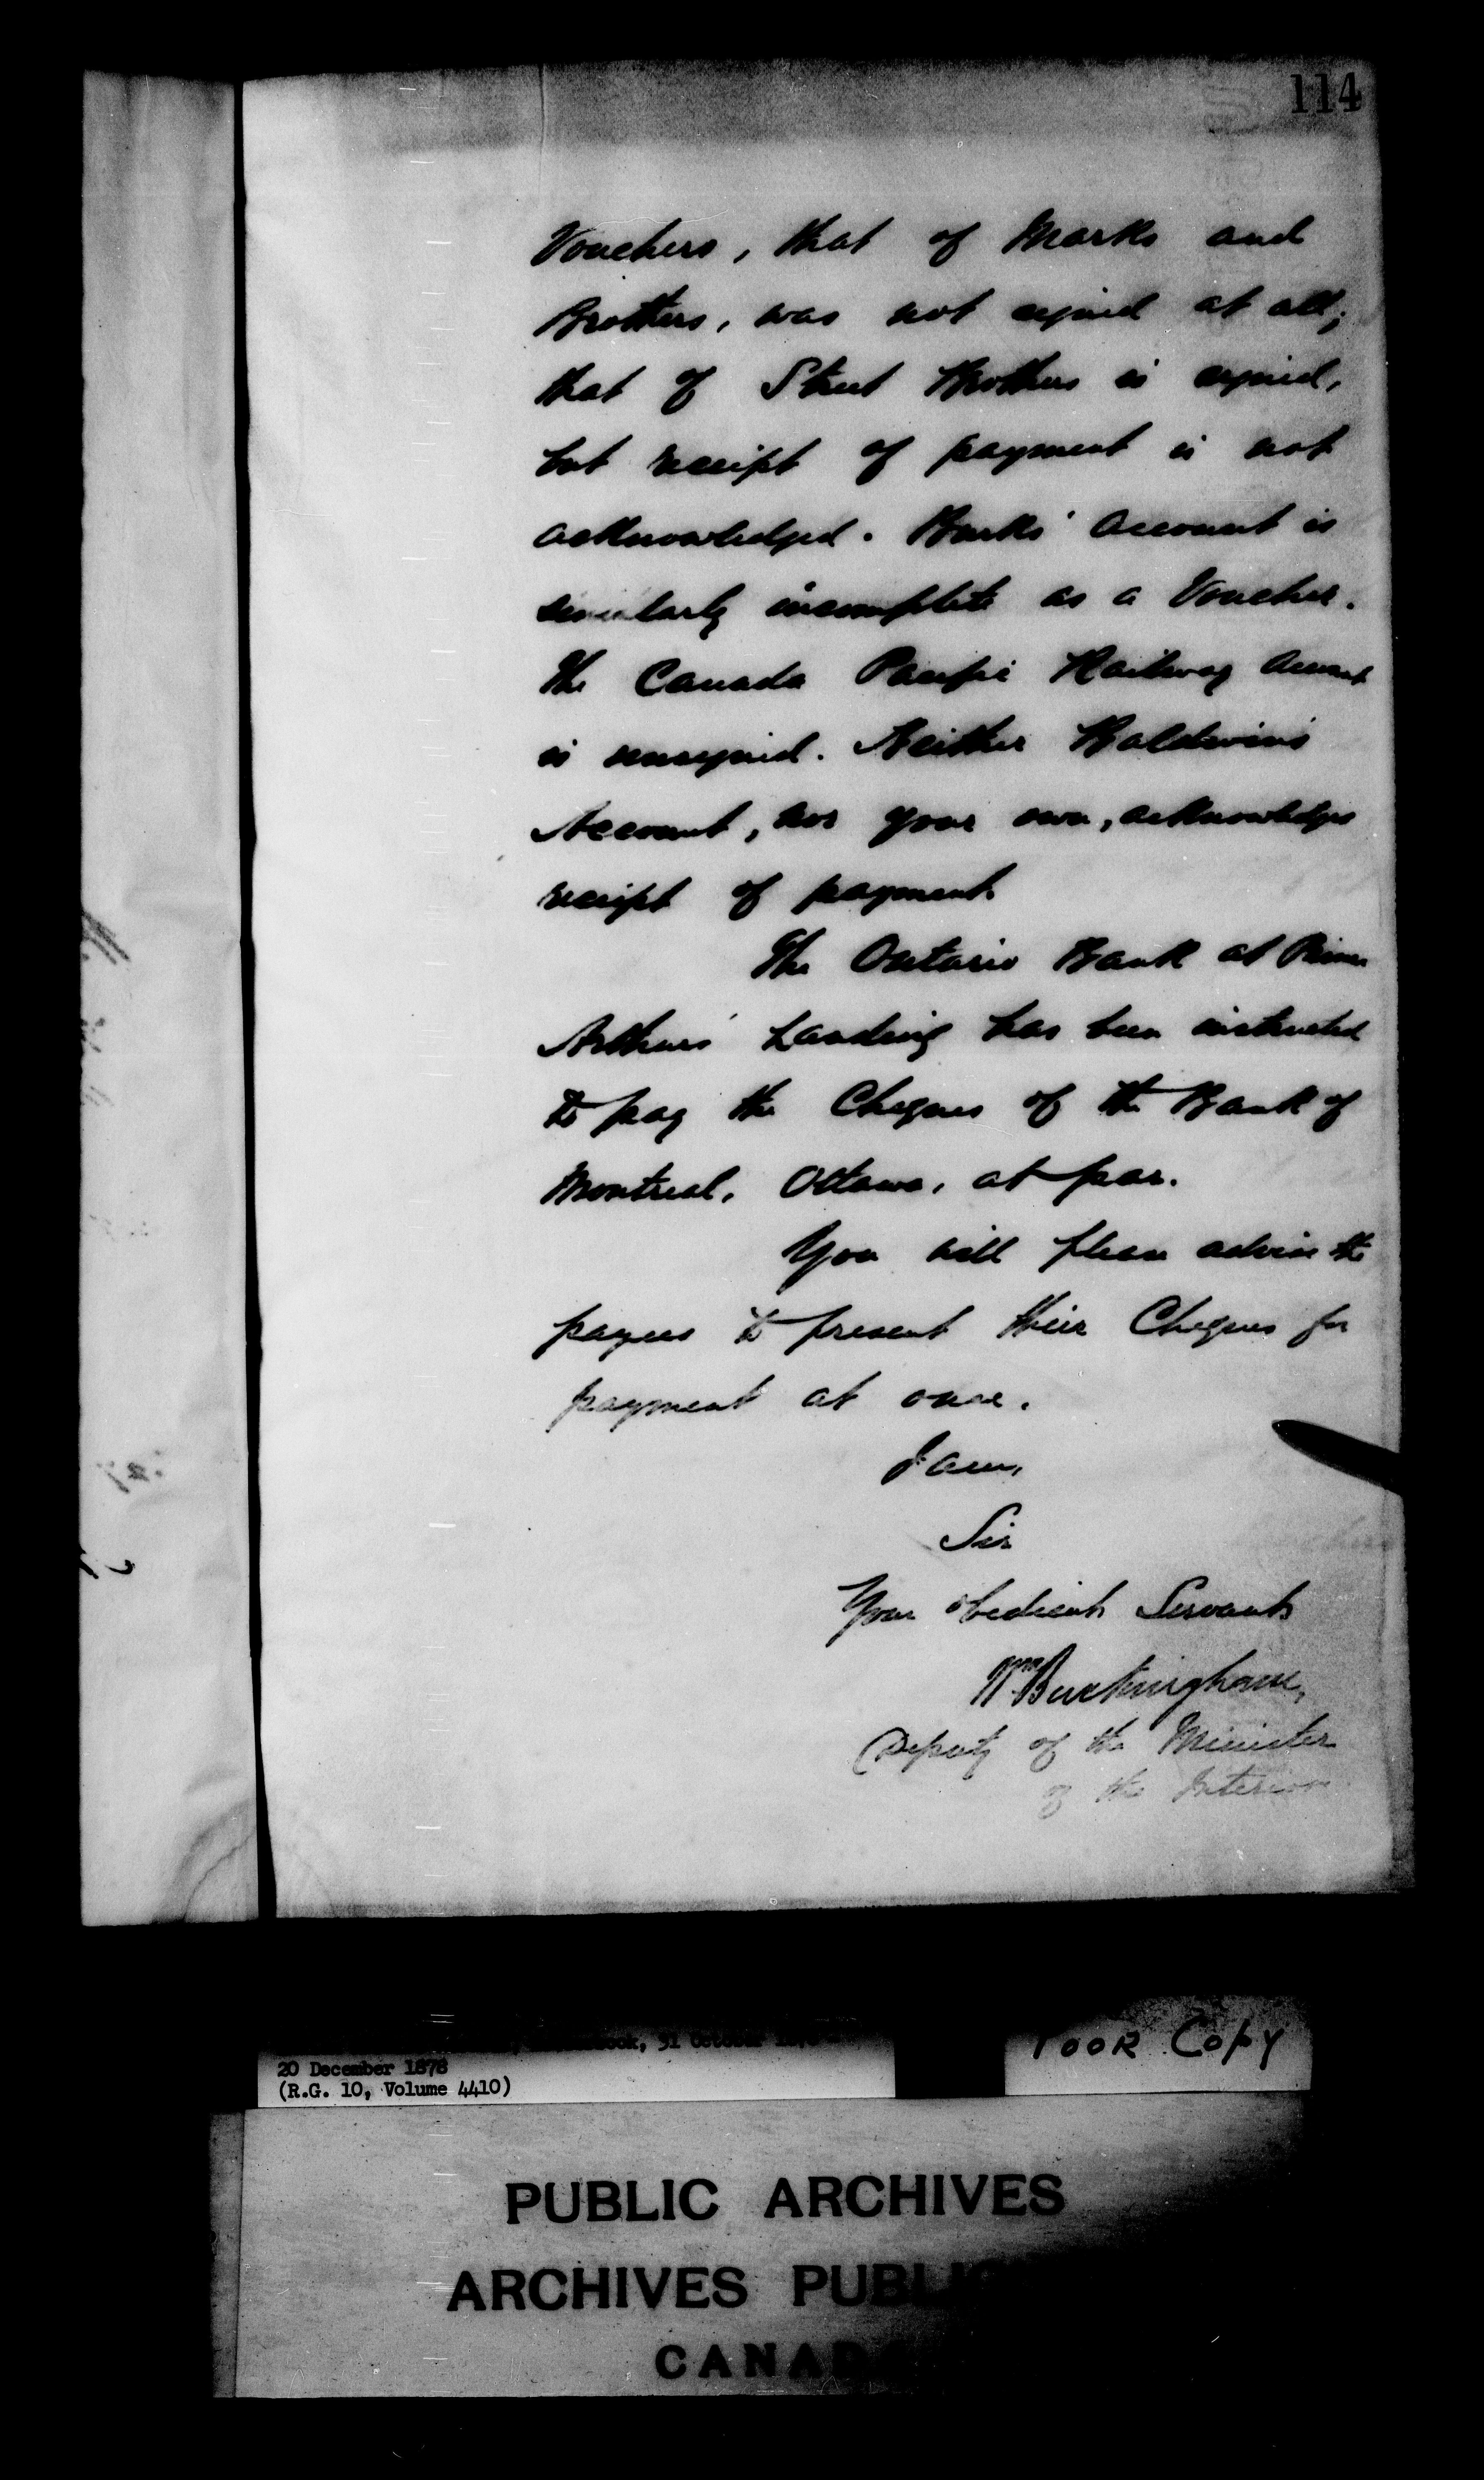 114
Vouchers, that of Marks and
Brothers, was not signed at all;
that of Street Brothers is signed,
but receipt of payment is not
acknowledged. Banks' Account is
similarly incomplete as a Voucher.
The Canada Pacific Railway Account
is unsigned. Neither Baldwin's
Account, nor your own, acknowledges
receipt of payment.
The Ontario Bank at Prince
Arthurs' Landing has been instructed
to pay the Cheques of the Bank of
Montreal, Ottawa, at par.
You will please advise the
payees to present their Cheques for
payment at once.
I am,
Sir
Your obedient Servant
Wm Buckingham,
Deputy of the Minister
of the Interior
31 October
20 December 1878
(R.G. 10, Volume 4410)
POOR Copy
PUBLIC ARCHIVES
ARCHIVES PUBLIC
CANADA